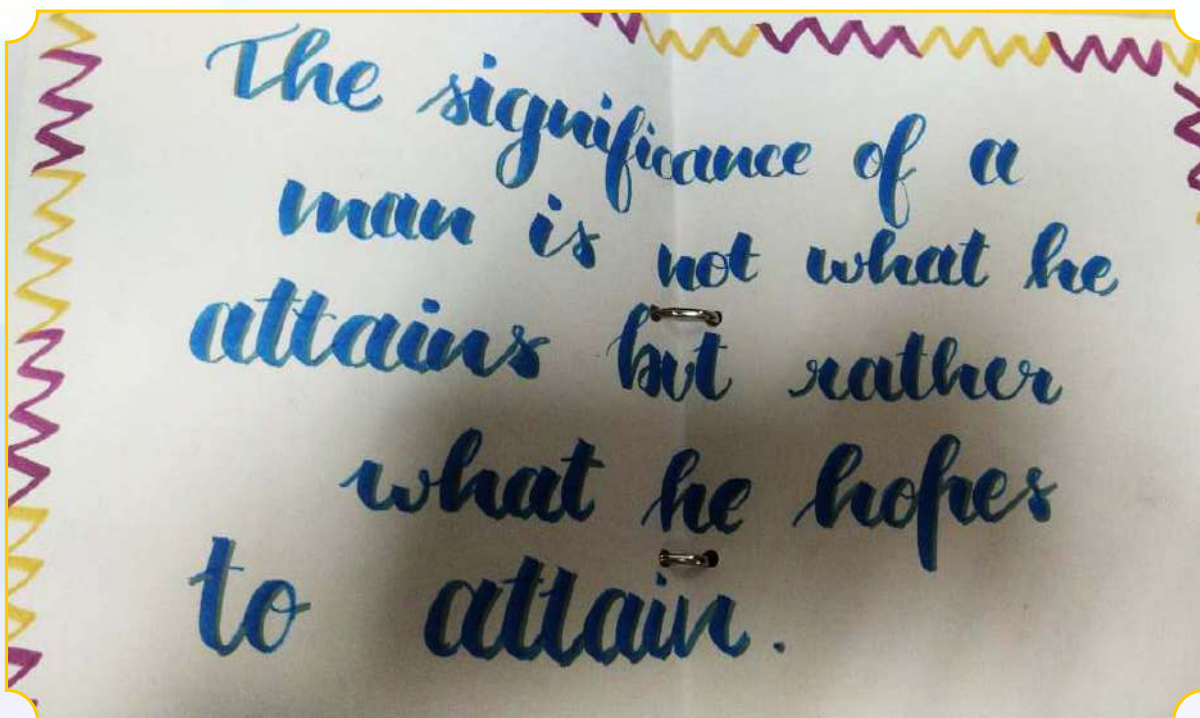 The significance of a
man is not what he
attains but rather
what he hopes
to attain.